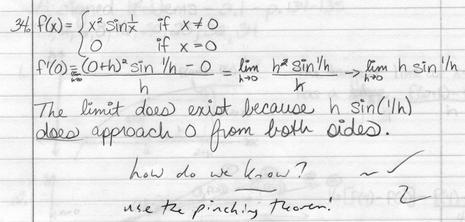 34. f(x) = { x² sin 1/x if x ≠ 0
0 if x = 0
f'(0) = lim h→0 (0+h)² sin 1/h − 0 / h = lim h→0 h² sin 1/h / h → lim h→0 h sin 1/h
The limit does exist because h sin(1/h)
does approach 0 from both sides.
how do we know? ~ ✓
use the pinching theorem! 2